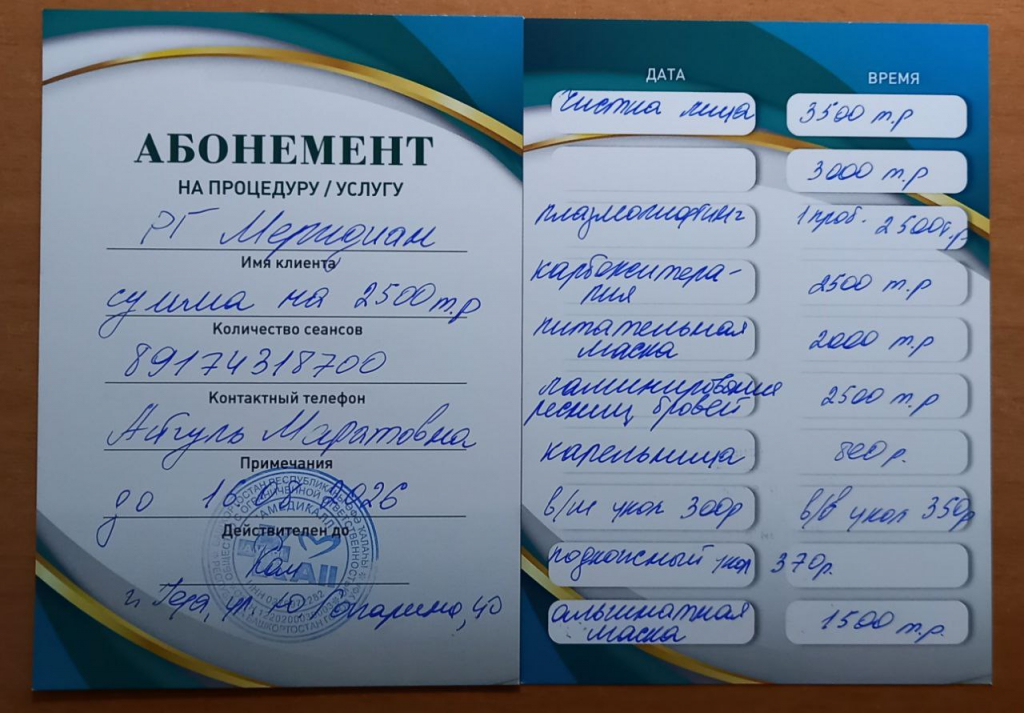 АБОНЕМЕНТ
НА ПРОЦЕДУРУ / УСЛУГУ
РГ Меридиан
Имя клиента
сумма на 2500 т.р
Количество сеансов
89174318700
Контактный телефон
Айгуль Маратовна
Примечания
до 2026
Действителен до
г. Уфа, ул. Ю. Гагарина, 40
ДАТА ВРЕМЯ
Чистка лица 3500 т.р
3000 т.р
плазмолифтинг 1 проб. 2500т.р.
карбокситера- 2500 т.р
пия
питательная 2000 т.р
маска
ламинирование 2500 т.р
ресниц, бровей
капельница 800 р.
в/м укол 300р в/в укол 350р
подкожный укол 370р.
альгинатная 1500 т.р.
маска